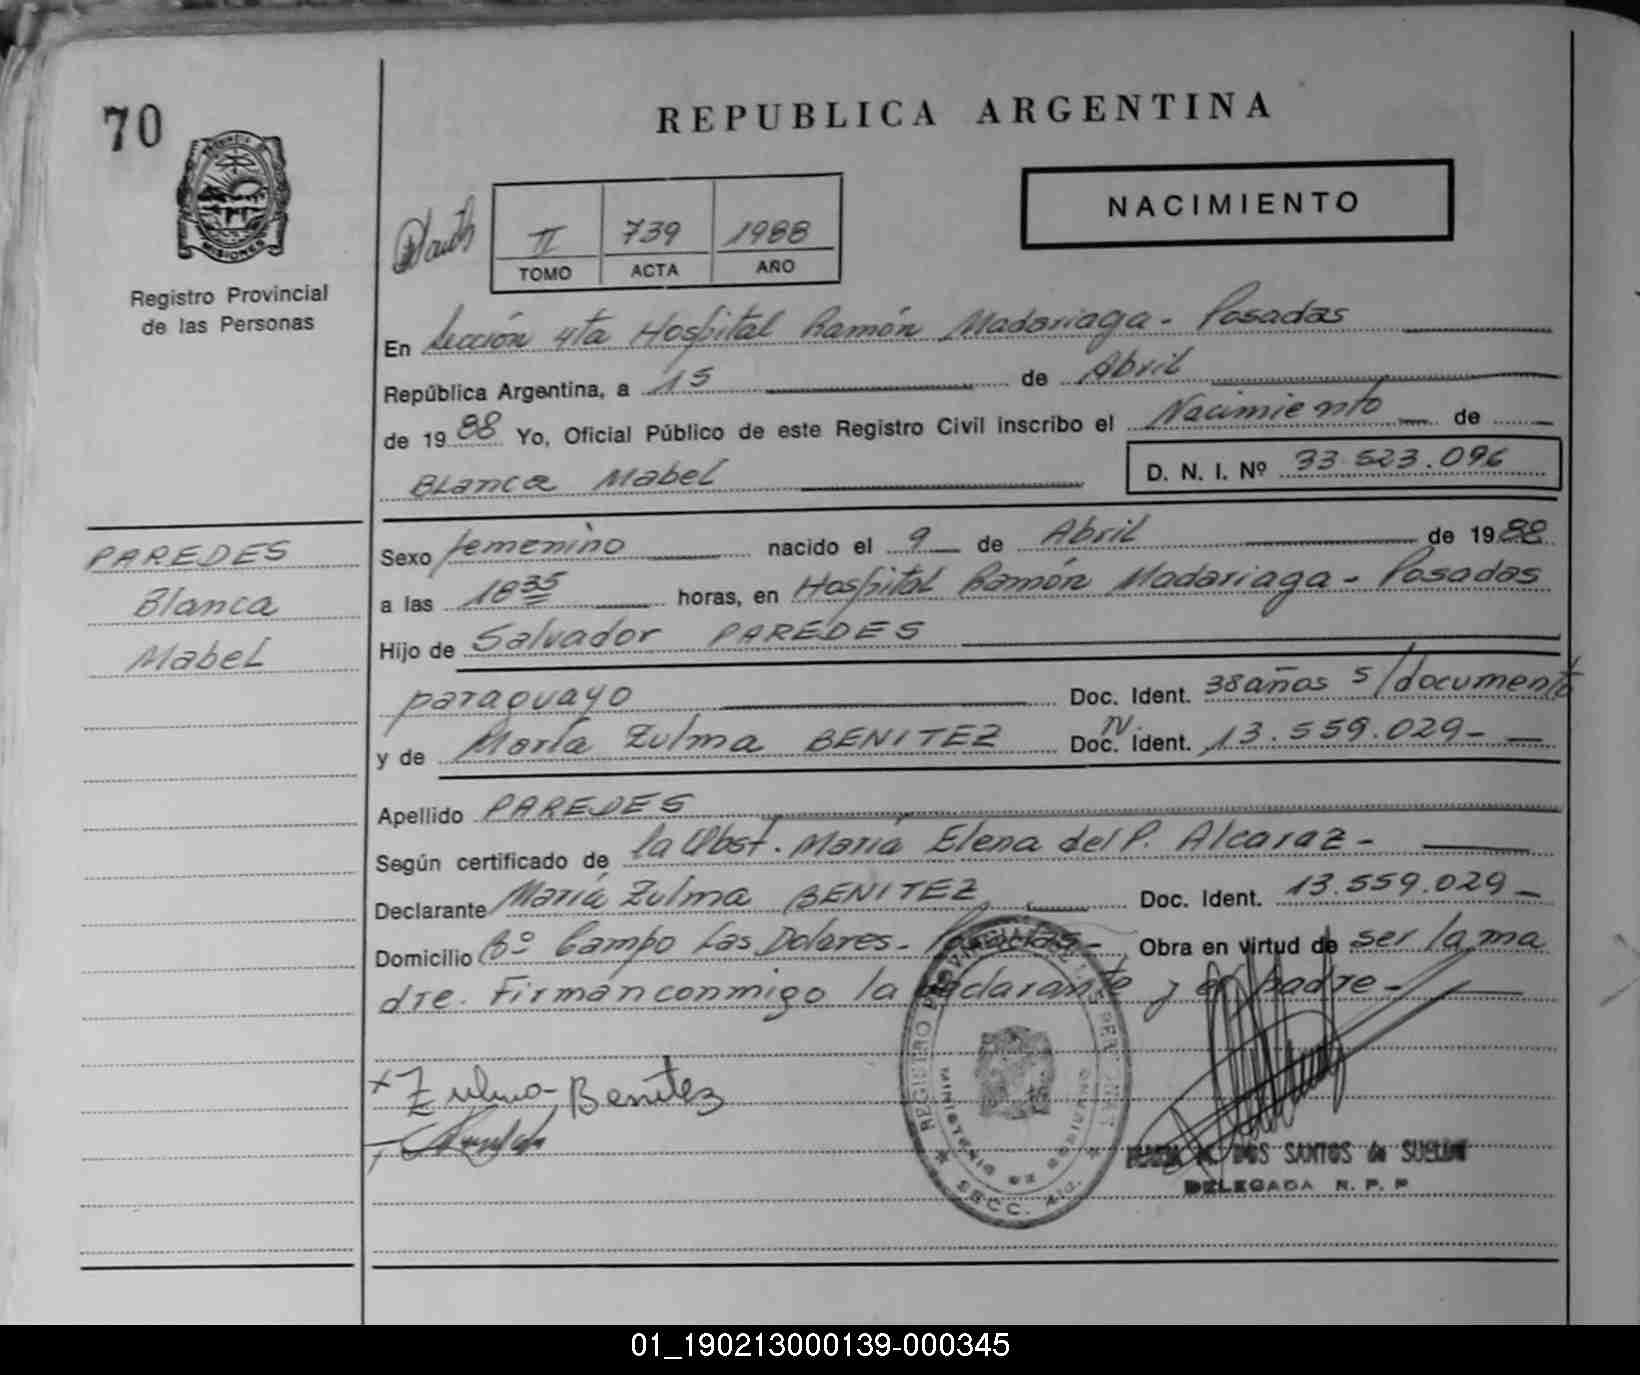 70
REPUBLICA ARGENTINA
PROVINCIA DE
MISIONES
Registro Provincial
de las Personas
NACIMIENTO
II 739 1988
TOMO ACTA AÑO
En Sección 4ta Hospital Ramón Madariaga - Posadas
República Argentina, a 15 de Abril
de 19 88 Yo, Oficial Público de este Registro Civil inscribo el Nacimiento de
Blanca Mabel D. N. I. Nº 33.523.096
PAREDES
Blanca
Mabel
Sexo femenino nacido el 9 de Abril de 1988
a las 18 35 horas, en Hospital Ramón Madariaga - Posadas
Hijo de Salvador PAREDES
paraguayo Doc. Ident. 38 años s/documento
y de María Zulma BENITEZ Doc. N Ident. 13.559.029-
Apellido PAREDES
Según certificado de la Obst. María Elena del P. Alcaraz-
Declarante María Zulma BENITEZ Doc. Ident. 13.559.029-
Domicilio Bº Campo Las Dolores - Posadas - Obra en virtud de ser la ma
dre. Firman conmigo la declarante y el padre-
REGISTRO PROVINCIAL DE LAS PERSONAS
MINISTERIO DE GOBIERNO
SECC. 4ta.
x Zulma Benítez
DOS SANTOS de
DELEGADA R. P. P.
01_190213000139-000345